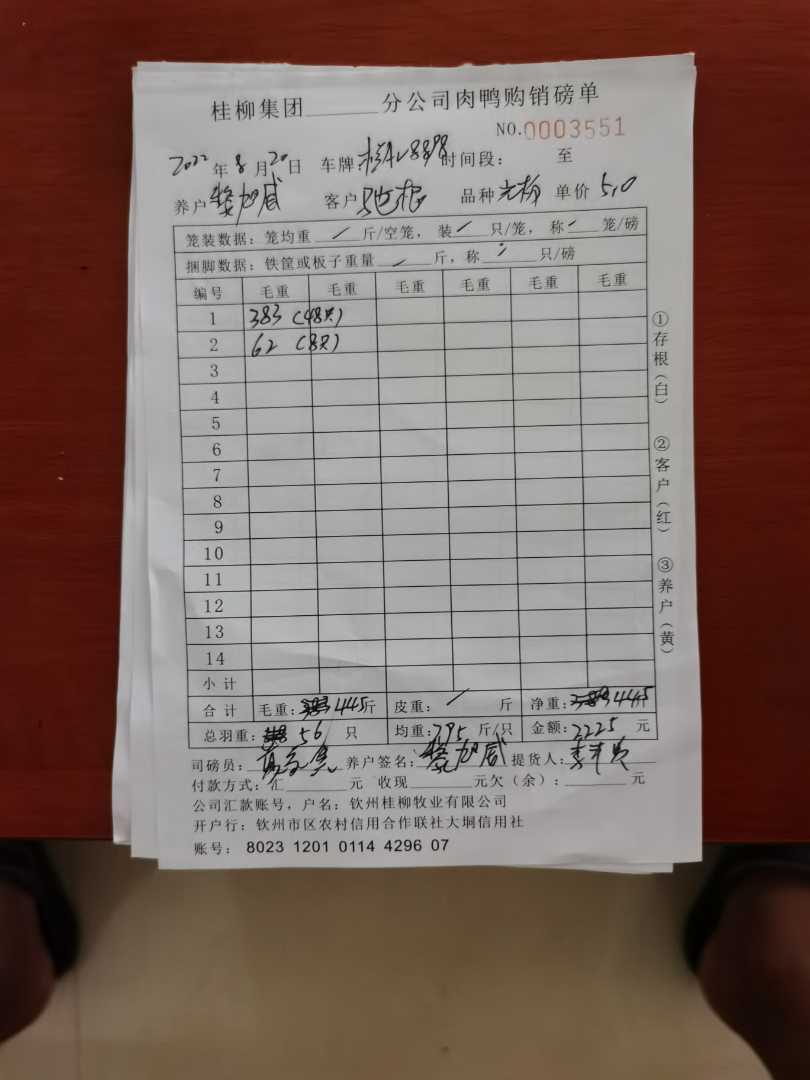 桂柳集团______分公司肉鸭购销磅单
NO.0003551
2022年8月20日 车牌 8898 时间段： 至
养户 客户 品种 单价 5.0
笼装数据：笼均重 / 斤/空笼，装 / 只/笼，称 / 笼/磅
捆脚数据：铁筐或板子重量 / 斤，称 / 只/磅
编号 毛重 毛重 毛重 毛重 毛重 毛重
1 383 (48只)
2 62 (8只)
3
4
5
6
7
8
9
10
11
12
13
14
小计
合计 毛重：445斤 皮重： / 斤 净重：445斤
总羽重：56 只 均重：7.95 斤/只 金额：2225 元
司磅员： 养户签名： 提货人：
付款方式：汇______元 收现______元欠（余）：______元
公司汇款账号，户名：钦州桂柳牧业有限公司
开户行：钦州市区农村信用合作联社大垌信用社
账号： 8023 1201 0114 4296 07
①存根（白）
②客户（红）
③养户（黄）